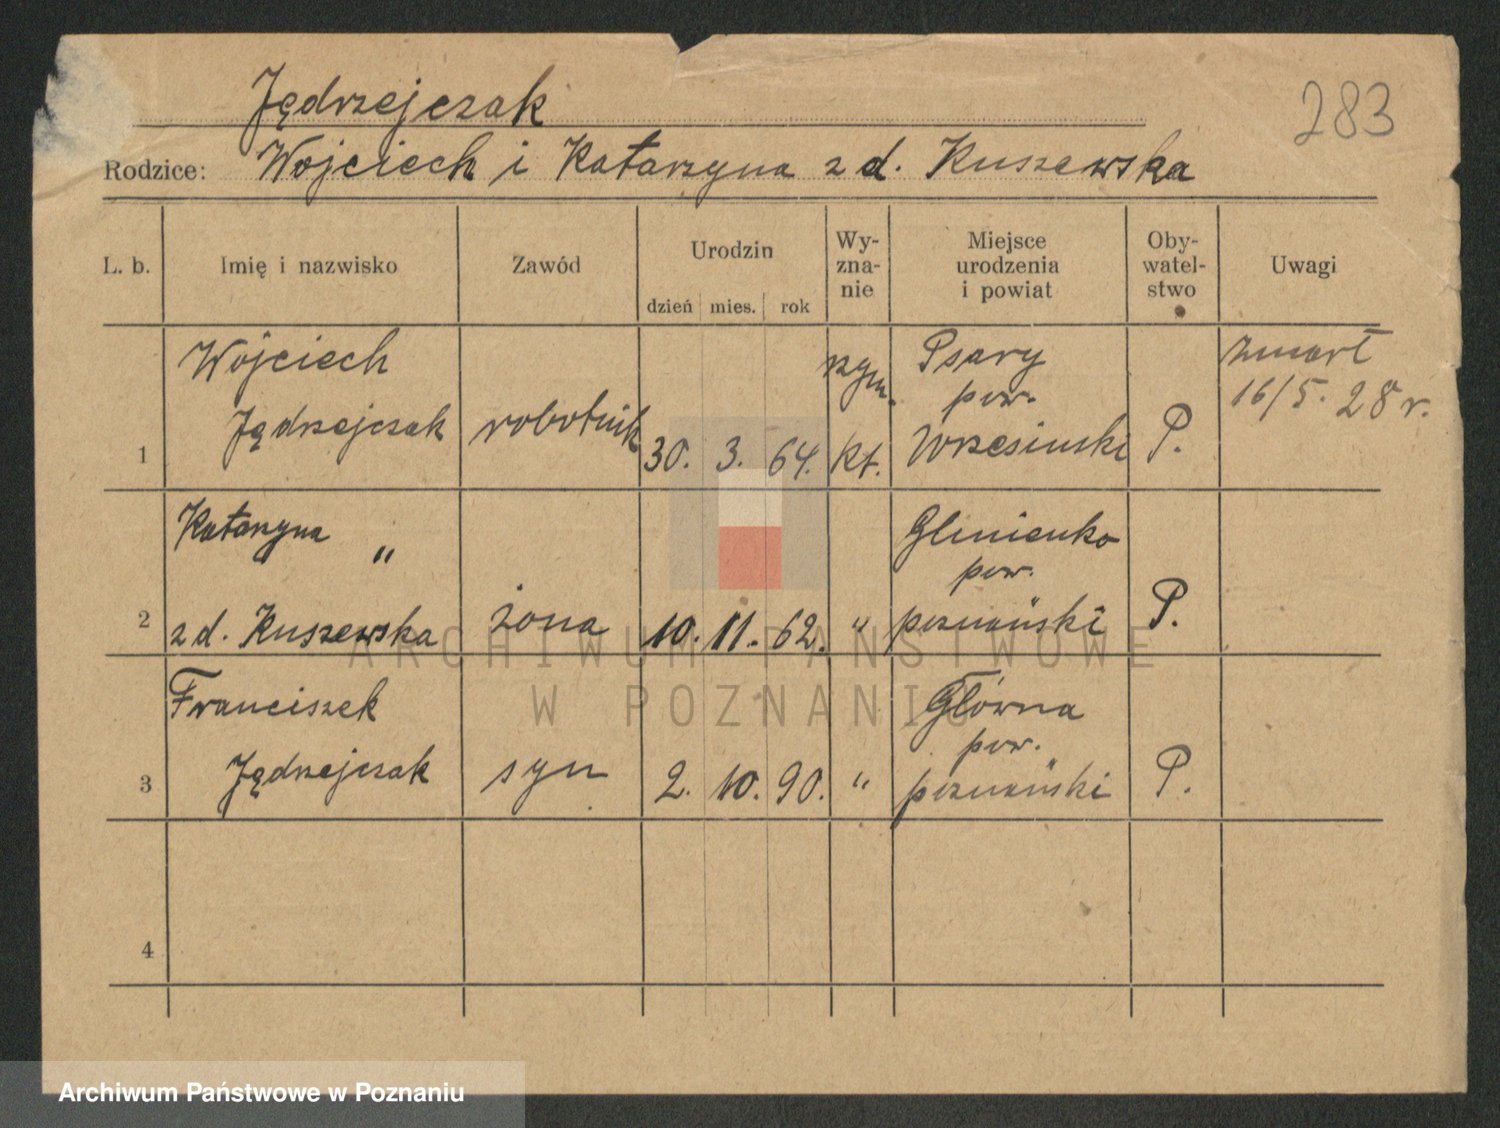 283
Jędrzejczak
Rodzice: Wojciech i Katarzyna z d. Kuszewska
L. b. Imię i nazwisko Zawód Urodzin dzień mies. rok Wy-zna-nie Miejsce urodzenia i powiat Oby-watel-stwo Uwagi
1 Wojciech Jędrzejczak robotnik 30. 3. 64. rzym. kt. Psary pow. Wrzesiński P. zmarł 16/5. 28 r.
2 Katarzyna " z d. Kuszewska żona 10. 11. 62. " Glinienko pow. poznański P.
3 Franciszek Jędrzejczak syn 2. 10. 90. " Główna pow. poznański P.
4
ARCHIWUM PAŃSTWOWE
W POZNANIU
Archiwum Państwowe w Poznaniu